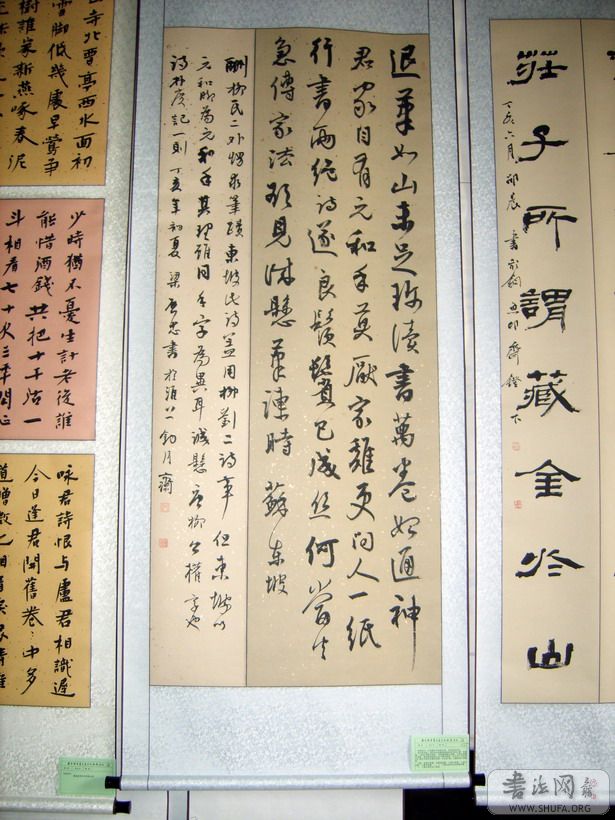 莊子所謂藏金於山
丁亥六月邵晨書
退筆如山未足珍讀書萬卷始通神
君家自有元和手莫厭家雞更問人一紙
行書兩絕詩遂良鬚鬢已成絲何當火
急傳家法欲見誠懸筆諫時 蘇東坡
酬柳氏二外甥求筆蹟東坡此詩蓋用柳劉二詩事但東坡以
元和脚為元和手其理雖同手字為異耳誠懸唐柳公權字也
詩林廣記一則 丁亥年初夏 梁 忠書於 釣月齋
寺北賈亭西水面初
雪脚低幾處早鶯爭
樹誰家新燕啄春泥
少時猶不憂生計老後誰
能惜酒錢共把十千沽一
斗相看七十欠三年閑征
咏君詩恨與盧君相識遲
今日逢君開舊卷卷中多
道贈微之相看掩淚情難
书法网
WWW.SHUFA.ORG